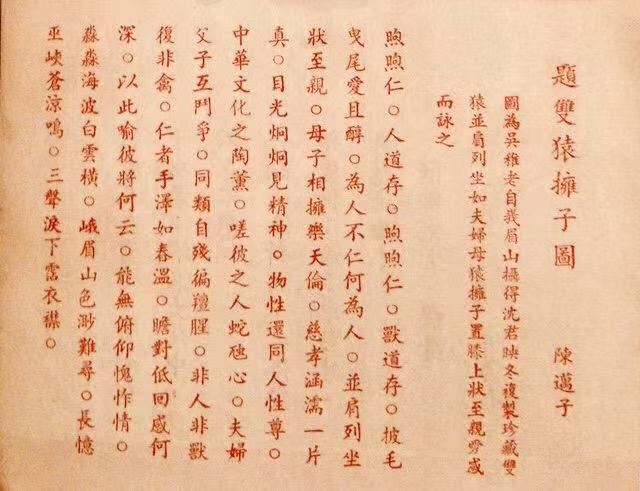 題雙猿擁子圖　陳邁子
圖為吳稚老自峩眉山攝得沈君映冬複製珍藏雙
猿並肩列坐如夫婦母猿擁子置膝上狀至親爰感
而詠之
煦煦仁○人道存○煦煦仁○獸道存○披毛
曳尾愛且醇○為人不仁何為人○並肩列坐
狀至親○母子相擁樂天倫○慈孝涵濡一片
真○目光炯炯見精神○物性還同人性尊○
中華文化之陶薰○嗟彼之人蛇虺心○夫婦
父子互鬥爭○同類自殘徧羶腥○非人非獸
復非禽○仁者手澤如春溫○瞻對低回感何
深○以此喻彼將何云○能無俯仰愧怍情○
淼淼海波白雲橫○峨眉山色渺難尋○長憶
巫峽蒼涼鳴○三聲淚下霑衣襟○